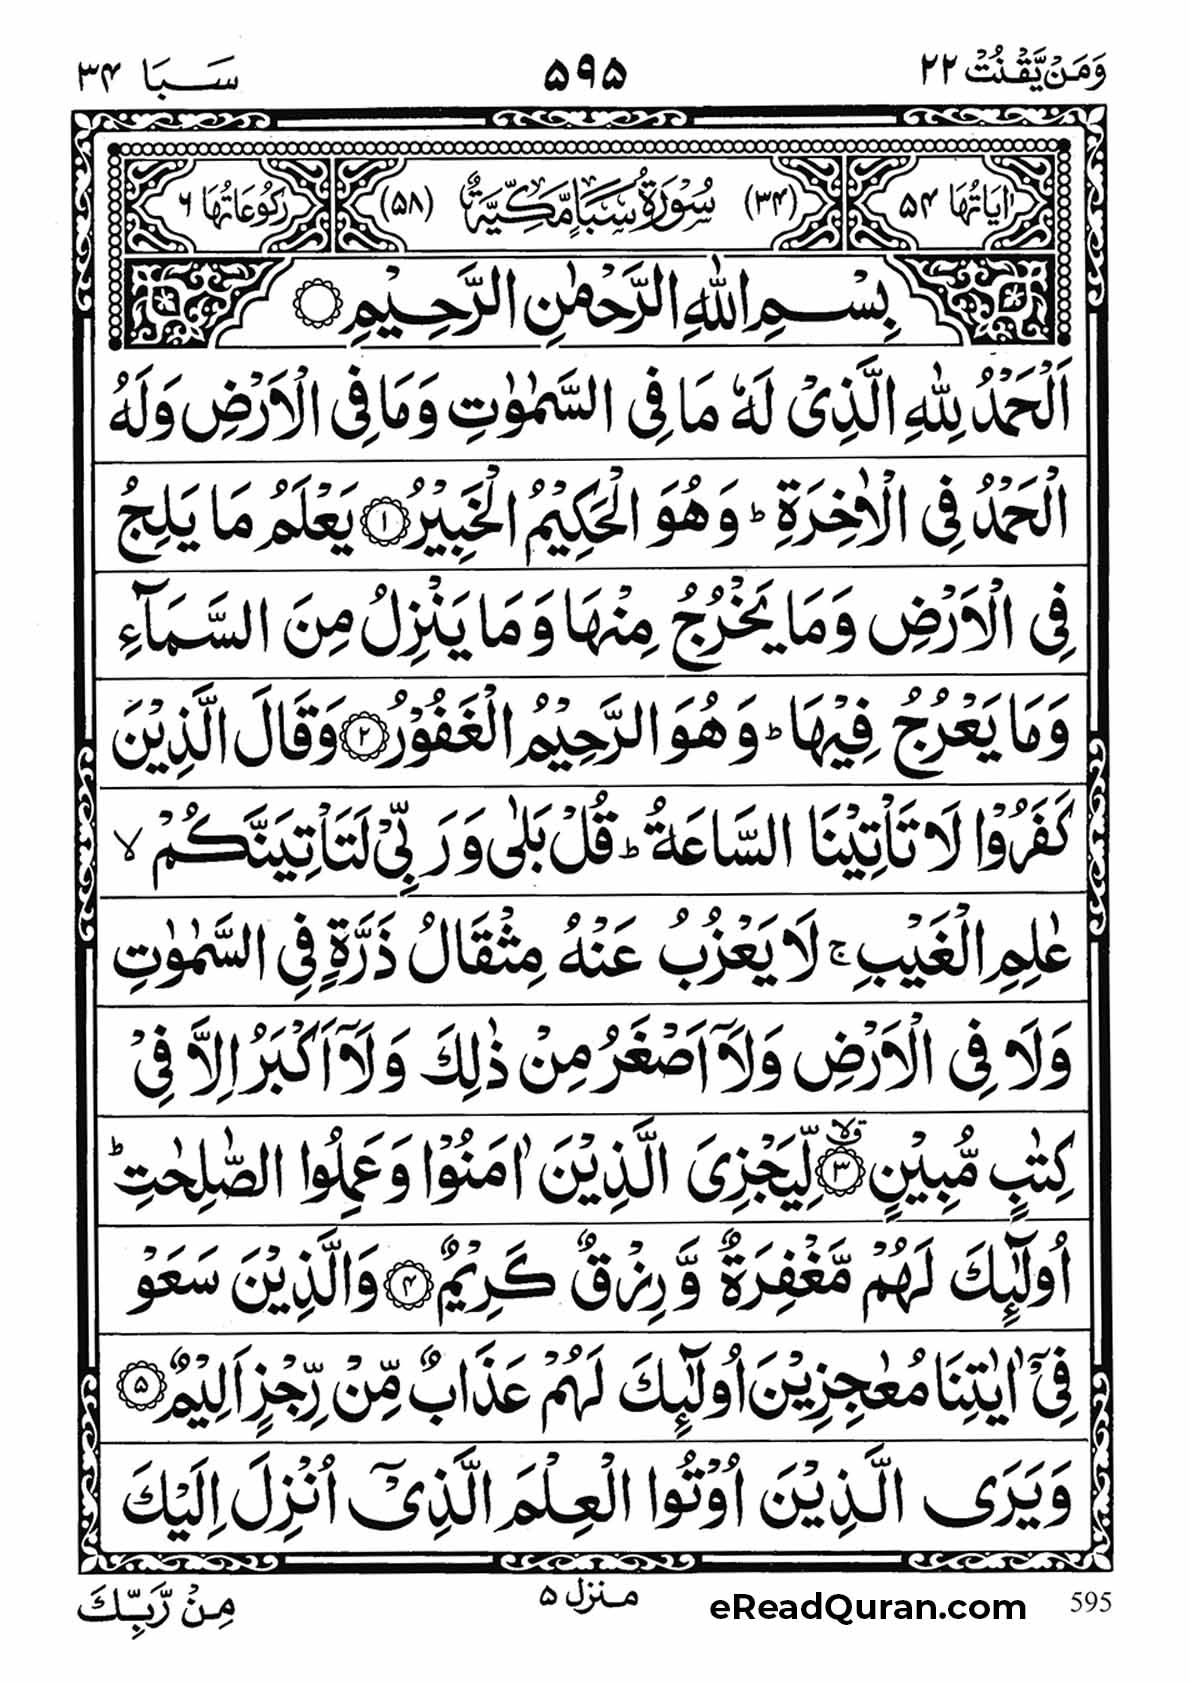 وَمَنْ يَّقْنُتْ ۲۲ ۵۹۵ سَبَا ۳۴
اٰيَاتُهَا ۵۴ (۳۴) سُوْرَةُ سَبَاٍ مَّكِّيَّةٌ (۵۸) رُكُوْعَاتُهَا ۶
بِسْمِ اللّٰهِ الرَّحْمٰنِ الرَّحِيْمِ ۝
اَلْحَمْدُ لِلّٰهِ الَّذِىْ لَهٗ مَا فِى السَّمٰوٰتِ وَمَا فِى الْاَرْضِ وَلَهُ
الْحَمْدُ فِى الْاٰخِرَةِ ؕ وَهُوَ الْحَكِيْمُ الْخَبِيْرُ ۝۱ يَعْلَمُ مَا يَلِجُ
فِى الْاَرْضِ وَمَا يَخْرُجُ مِنْهَا وَمَا يَنْزِلُ مِنَ السَّمَآءِ
وَمَا يَعْرُجُ فِيْهَا ؕ وَهُوَ الرَّحِيْمُ الْغَفُوْرُ ۝۲ وَقَالَ الَّذِيْنَ
كَفَرُوْا لَا تَاْتِيْنَا السَّاعَةُ ؕ قُلْ بَلٰى وَرَبِّىْ لَتَاْتِيَنَّكُمْ ۙ
عٰلِمِ الْغَيْبِ ۚ لَا يَعْزُبُ عَنْهُ مِثْقَالُ ذَرَّةٍ فِى السَّمٰوٰتِ
وَلَا فِى الْاَرْضِ وَلَاۤ اَصْغَرُ مِنْ ذٰلِكَ وَلَاۤ اَكْبَرُ اِلَّا فِىْ
كِتٰبٍ مُّبِيْنٍ ۝۳ۙق لِّيَجْزِىَ الَّذِيْنَ اٰمَنُوْا وَعَمِلُوا الصّٰلِحٰتِ ؕ
اُولٰٓئِكَ لَهُمْ مَّغْفِرَةٌ وَّرِزْقٌ كَرِيْمٌ ۝۴ وَالَّذِيْنَ سَعَوْ
فِىْۤ اٰيٰتِنَا مُعٰجِزِيْنَ اُولٰٓئِكَ لَهُمْ عَذَابٌ مِّنْ رِّجْزٍ اَلِيْمٌ ۝۵
وَيَرَى الَّذِيْنَ اُوْتُوا الْعِلْمَ الَّذِىْۤ اُنْزِلَ اِلَيْكَ
مِنْ رَّبِّكَ منزل ۵ eReadQuran.com 595